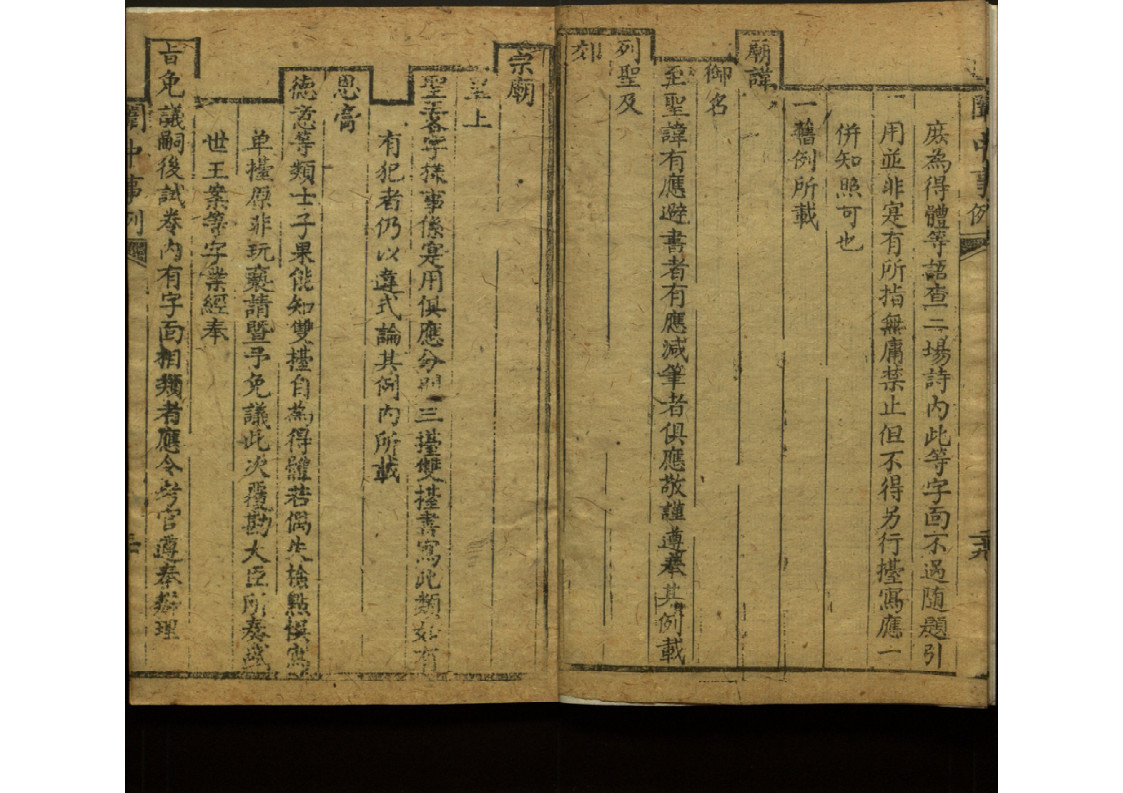 庶為得體等語查二場詩內此等字面不過隨題引
一用並非寔有所指無庸禁止但不得另行擡寫應一
併知照可也
一舊例所載
廟諱
御名
至聖諱有應避書者有應減筆者俱應敬謹遵奉其例載
列聖及
郊
宗廟
至上
聖主各字樣事係寔用俱應分別三擡雙擡書寫此類如有
有犯者仍以違式論其例內所載
恩膏
德意等類士子果能知雙擡自為得體若偶失檢點悞寫
单擡原非玩褻請暨予免議此次覆勘大臣所奏盛
世王案等字業經奉
旨免議嗣後試卷內有字面相類者應令考官遵奉辦理
闈中事例